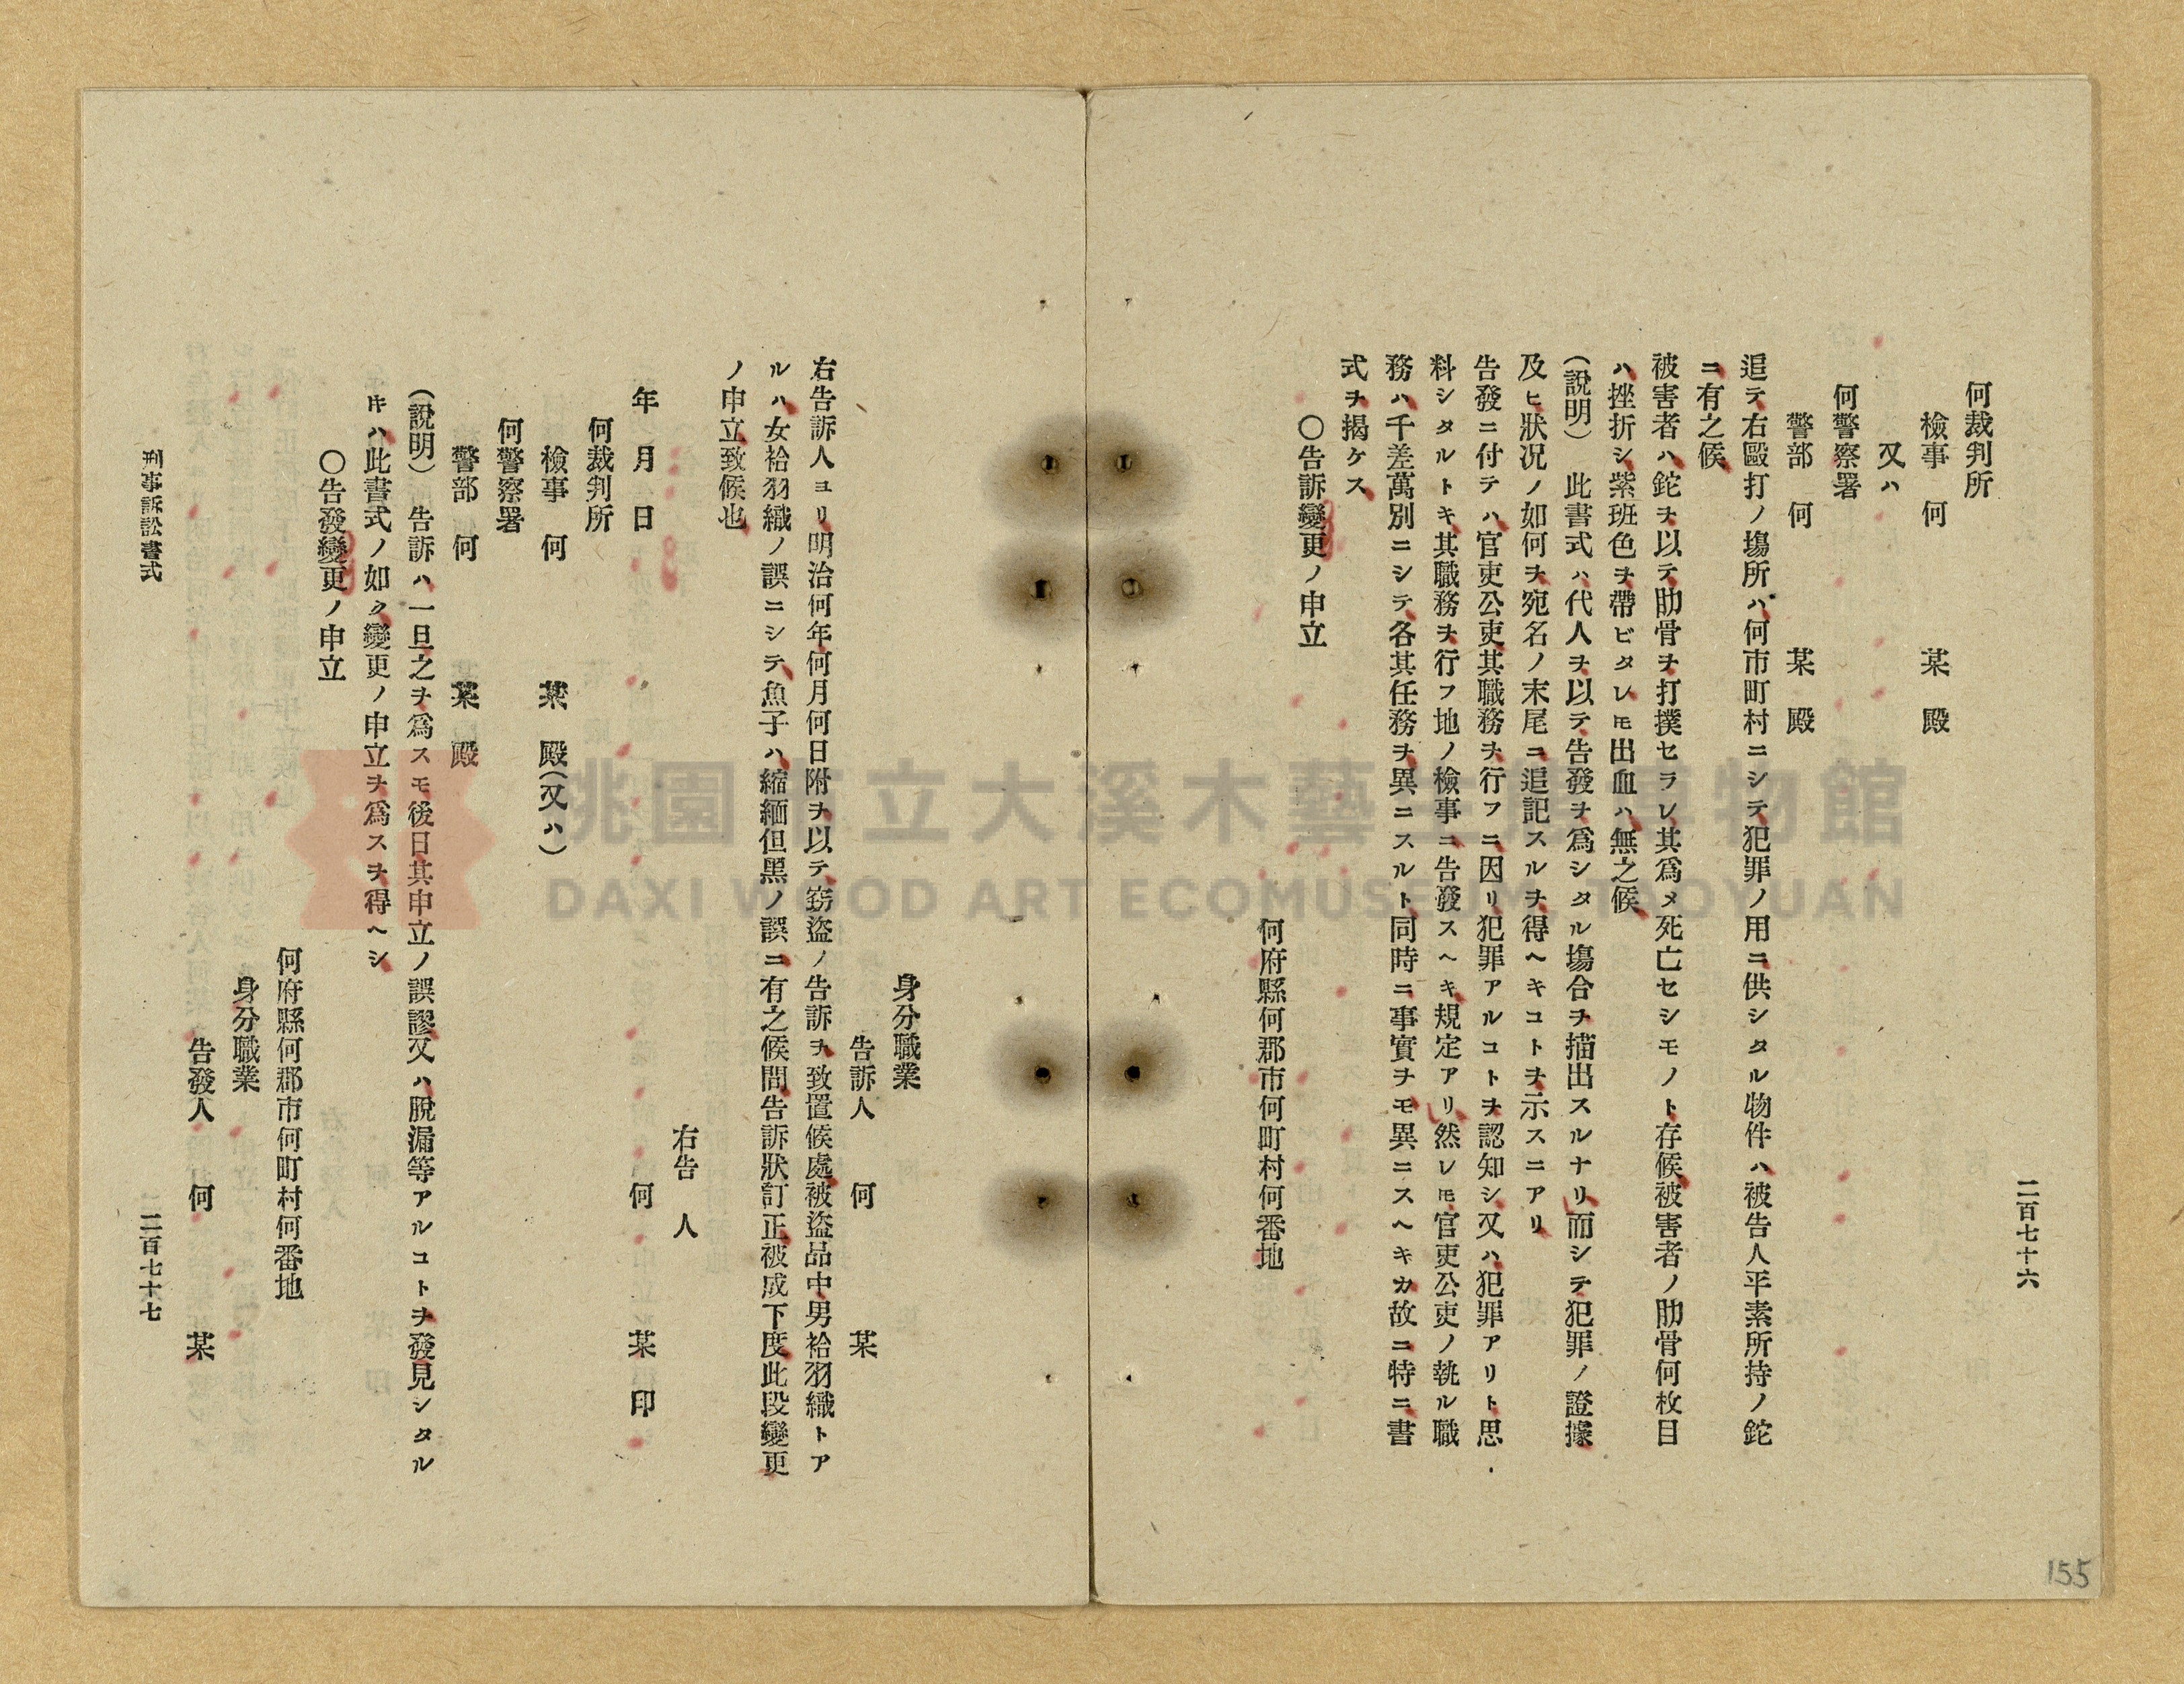 二百七十六
何裁判所
檢事　何　某　殿
又ハ
何警察署
警部　何　某　殿
追テ右毆打ノ塲所ハ何市町村ニシテ犯罪ノ用ニ供シタル物件ハ被告人平素所持ノ鉈
ニ有之候
被害者ハ鉈ヲ以テ肋骨ヲ打撲セラレ其爲メ死亡セシモノト存候被害者ノ肋骨何枚目
ハ挫折シ紫班色ヲ帶ビタレ𪜈出血ハ無之候
(說明)　此書式ハ代人ヲ以テ告發ヲ爲シタル塲合ヲ描出スルナリ而シテ犯罪ノ證據
及ヒ狀况ノ如何ヲ宛名ノ末尾ニ追記スルヲ得ヘキコトヲ示スニアリ
告發ニ付テハ官吏公吏其職務ヲ行フニ因リ犯罪アルコトヲ認知シ又ハ犯罪アリト思
料シタルトキ其職務ヲ行フ地ノ檢事ニ告發スヘキ規定アリ然レ𪜈官吏公吏ノ執ル職
務ハ千差萬別ニシテ各其任務ヲ異ニスルト同時ニ事實ヲモ異ニスヘキカ故ニ特ニ書
式ヲ揭ケス
〇告訴變更ノ申立
何府縣何郡市何町村何番地
身分職業
告訴人　何　某
右告訴人ヨリ明治何年何月何日附ヲ以テ竊盜ノ告訴ヲ致置候處被盜品中男袷羽織トア
ルハ女袷羽織ノ誤ニシテ魚子ハ縮緬但黑ノ誤ニ有之候間告訴狀訂正被成下度此段變更
ノ申立致候也
右告　人
年　月　日　何　某　印
何裁判所
檢事　何　某　殿(又ハ)
何警察署
警部　何　某　殿
(說明)　告訴ハ一旦之ヲ爲スモ後日其申立ノ誤謬又ハ脫漏等アルコトヲ發見シタル
𬼀ハ此書式ノ如ク變更ノ申立ヲ爲スヲ得ヘシ
〇告發變更ノ申立
何府縣何郡市何町村何番地
身分職業
告發人　何　某
刑事訴訟書式　二百七十七
155
桃園市立大溪木藝生態博物館
DAXI WOOD ART ECOMUSEUM, TAOYUAN